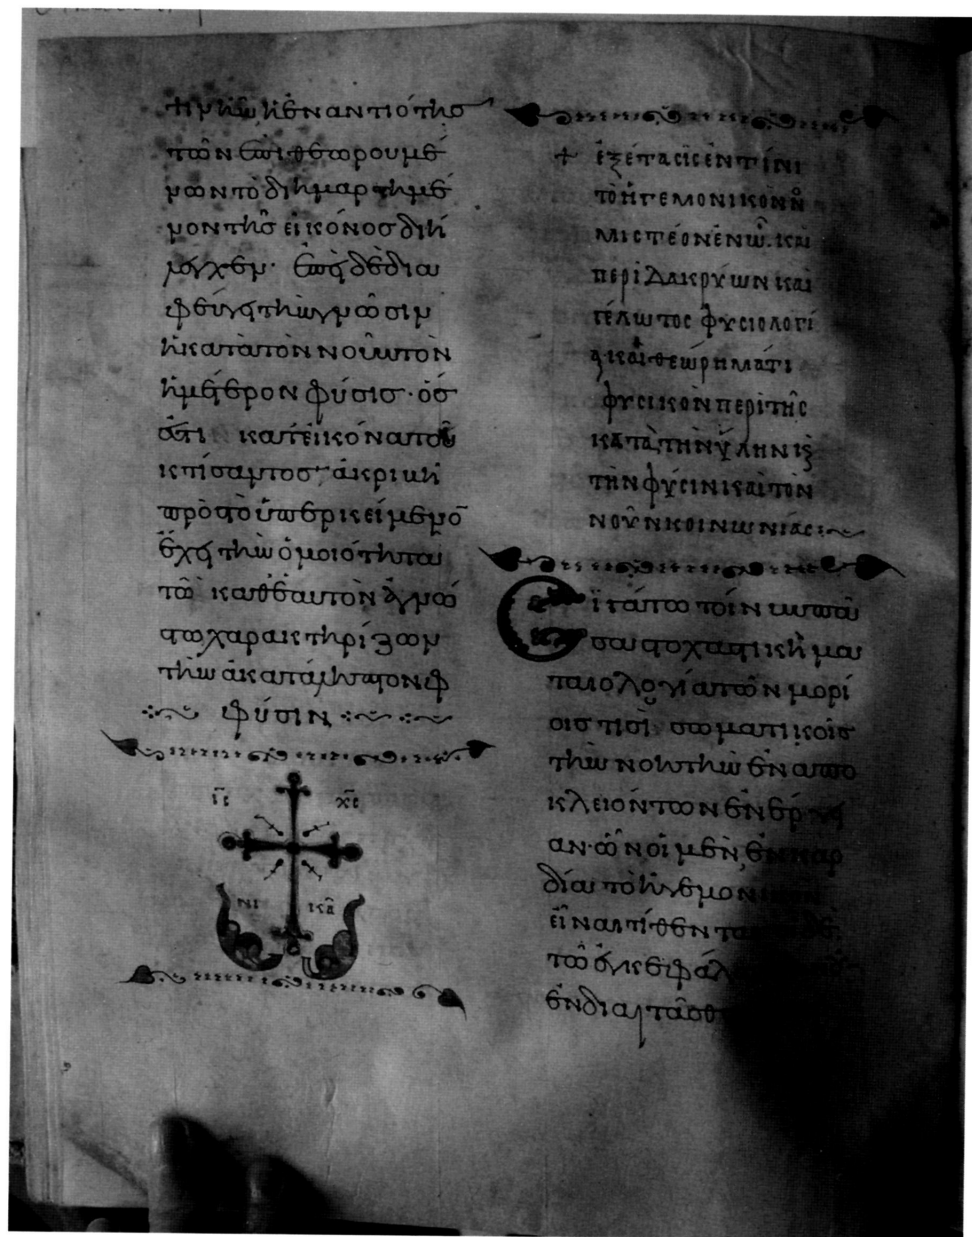 ἡ ἐναντιότησ
τῶν ἐπιθεωρουμέ
νων τὸ διημαρτημέ
νον τῆσ εἰκόνοσ διή
λεγχεν· ἐπεὶ δὲ δια
φεύγει τὴν γνῶσιν
ἡ κατὰ τὸν νοῦν τὸν
ἡμέτερον φύσισ· ὅσ
ἐστι κατ' εἰκόνα τοῦ
κτίσαντοσ· ἀκριβῆ
πρὸσ τὸ ὑπερκείμενο̄
ἔχει τὴν ὁμοιότητα
τῶ καθ' ἑαυτὸν ἀγνώ
στω χαρακτηρίζων
τὴν ἀκατάληπτον
φύσιν
ΙC ΧC
ΝΙ ΚΑ
+ ἐξέτασις ἐν τίνι
τὸ ἡγεμονικὸν νο
μιστέον ἐν ὧ· καὶ
περὶ δακρύων καὶ
γέλωτος φυσιολογί
α καὶ θεώρημά τι
φυσικὸν περὶ τῆς
κατὰ τὴν ὕλην κ̀
τὴν φύσιν καὶ τὸν
νοῦν κοινωνίας:~
Σιγάτω τοίνυν πᾶ
σα στοχαστικὴ μα
ταιολογία τῶν μορί
οισ τισὶ σωματικοῖσ
τὴν νοητὴν ἐναπο
κλειόντων ἐνέργει
αν· ὧν οἱ μὲν ἐν καρ
δία τὸ ἡγεμονικὸν
εἶναι τίθενται
τῶ ἐγκεφάλω
ἐνδιαιτᾶσθ